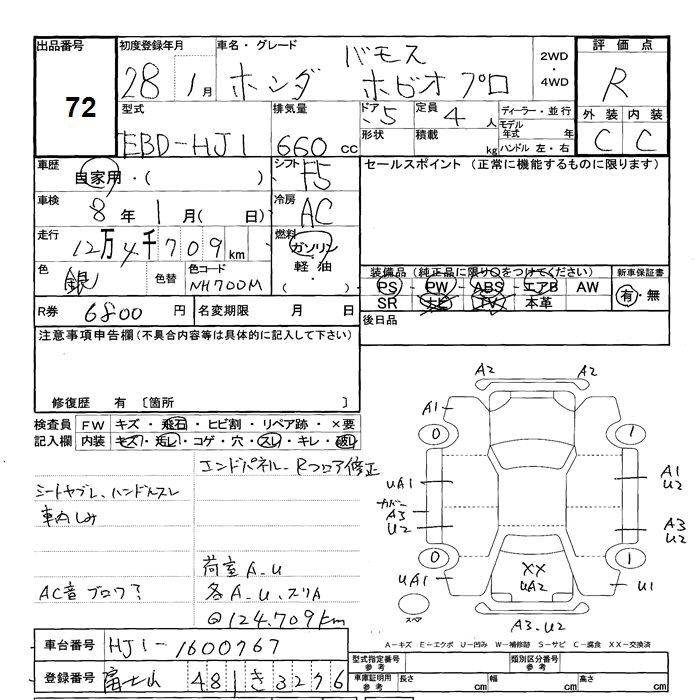 出品番号 初度登録年月 車名・グレード 2WD・4WD 評価点
72 28 1月 ホンダ バモス ホビオプロ R
型式 排気量 ドア 定員 ディーラー・並行 外装 内装
EBD-HJ1 660cc 5 4人 モデル年式 年 C C
形状 積載 kg ハンドル 左・右
車歴 自家用・( ) シフト F5 セールスポイント (正常に機能するものに限ります)
車検 8年 1月( 日) 冷房 AC
走行 12万4千709km 燃料 ガソリン・軽油・( )
色 銀 色替 色コード NH700M
装備品 (純正品に限り○をつけてください) 新車保証書
PS PW ABS エアB AW 有・無
SR ナビ TV 本革
R券 6800円 名変期限 月 日 後日品
注意事項申告欄 (不具合内容等は具体的に記入して下さい)
修復歴 有 〔箇所 〕
検査員記入欄 FW キズ・飛石・ヒビ割・リペア跡・×要
内装 キズ・汚レ・コゲ・穴・スレ・キレ・破レ
エンドパネル、Rフロア修正
シートヤブレ、ハンドルスレ
車内しみ
荷室A、U
AC音 ブロワ?
各A、U、スリA
@124.709km
A2 A2
A1
0 1
UA1 A1 U2
カバー A3 U2 A3 U2
0 1
UA1 XX UA2 U1
スペア A3、U2
A-キズ E-エクボ U-凹み W-補修跡 S-サビ C-腐食 XX-交換済
車台番号 HJ1-1600767
登録番号 富士山 481 き 3276
型式指定番号 参考 類別区分番号 参考
車庫証明用 参考 長さ cm 幅 cm 高さ cm